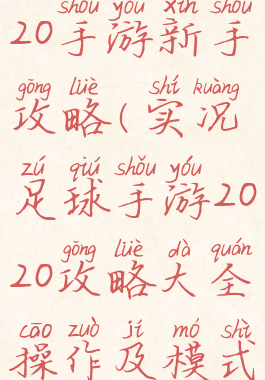 shǒu yóu xīn shǒu
20手游新手
gōng lüè shí kuàng
攻略(实况
zú qiú shǒu yóu
足球手游20
gōng lüè dà quán
20攻略大全
cāo zuò jí mó shì
操作及模式